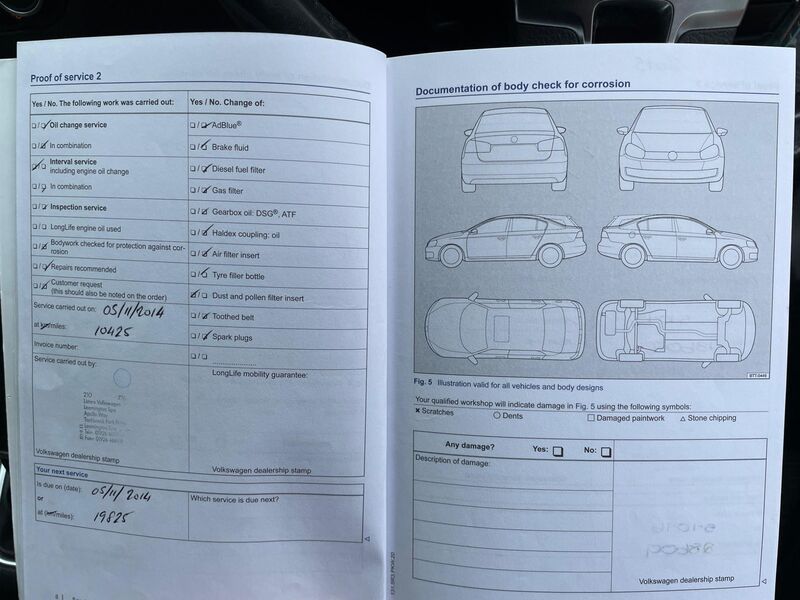 Proof of service 2
Yes / No. The following work was carried out:
Yes / No. Change of:
Oil change service
In combination
Interval service
including engine oil change
In combination
Inspection service
LongLife engine oil used
Bodywork checked for protection against cor-
rosion
Repairs recommended
Customer request
(this should also be noted on the order)
Service carried out on: 05/11/2014
at km/miles: 10425
Invoice number:
Service carried out by:
210
Listers Volkswagen
Leamington Spa
Apollo Way
Volkswagen dealership stamp
AdBlue®
Brake fluid
Diesel fuel filter
Gas filter
Gearbox oil: DSG®, ATF
Haldex coupling: oil
Air filter insert
Tyre filler bottle
Dust and pollen filter insert
Toothed belt
Spark plugs
LongLife mobility guarantee:
Volkswagen dealership stamp
Your next service
Is due on (date): 05/11/2014
or
at (km/miles): 19825
Which service is due next?
Documentation of body check for corrosion
BTT-0449
Fig. 5 Illustration valid for all vehicles and body designs
Your qualified workshop will indicate damage in Fig. 5 using the following symbols:
× Scratches
○ Dents
□ Damaged paintwork
△ Stone chipping
Any damage? Yes: No:
Description of damage:
Volkswagen dealership stamp